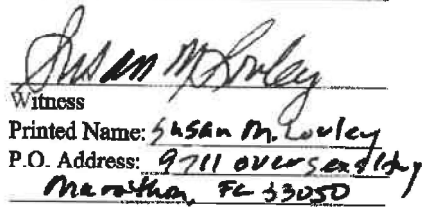 Susan M Lovley
Witness
Printed Name: Susan M. Lovley
P.O. Address: 9711 Overseas Hwy
Marathon, FL 33050